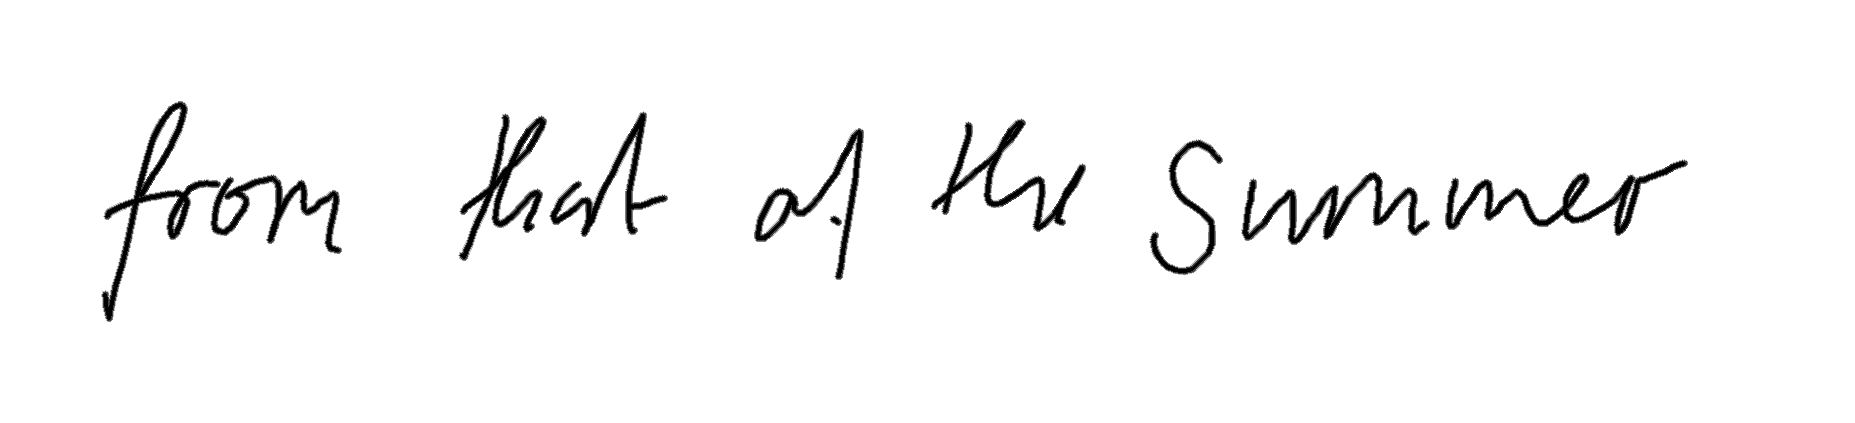 from that of the Summer